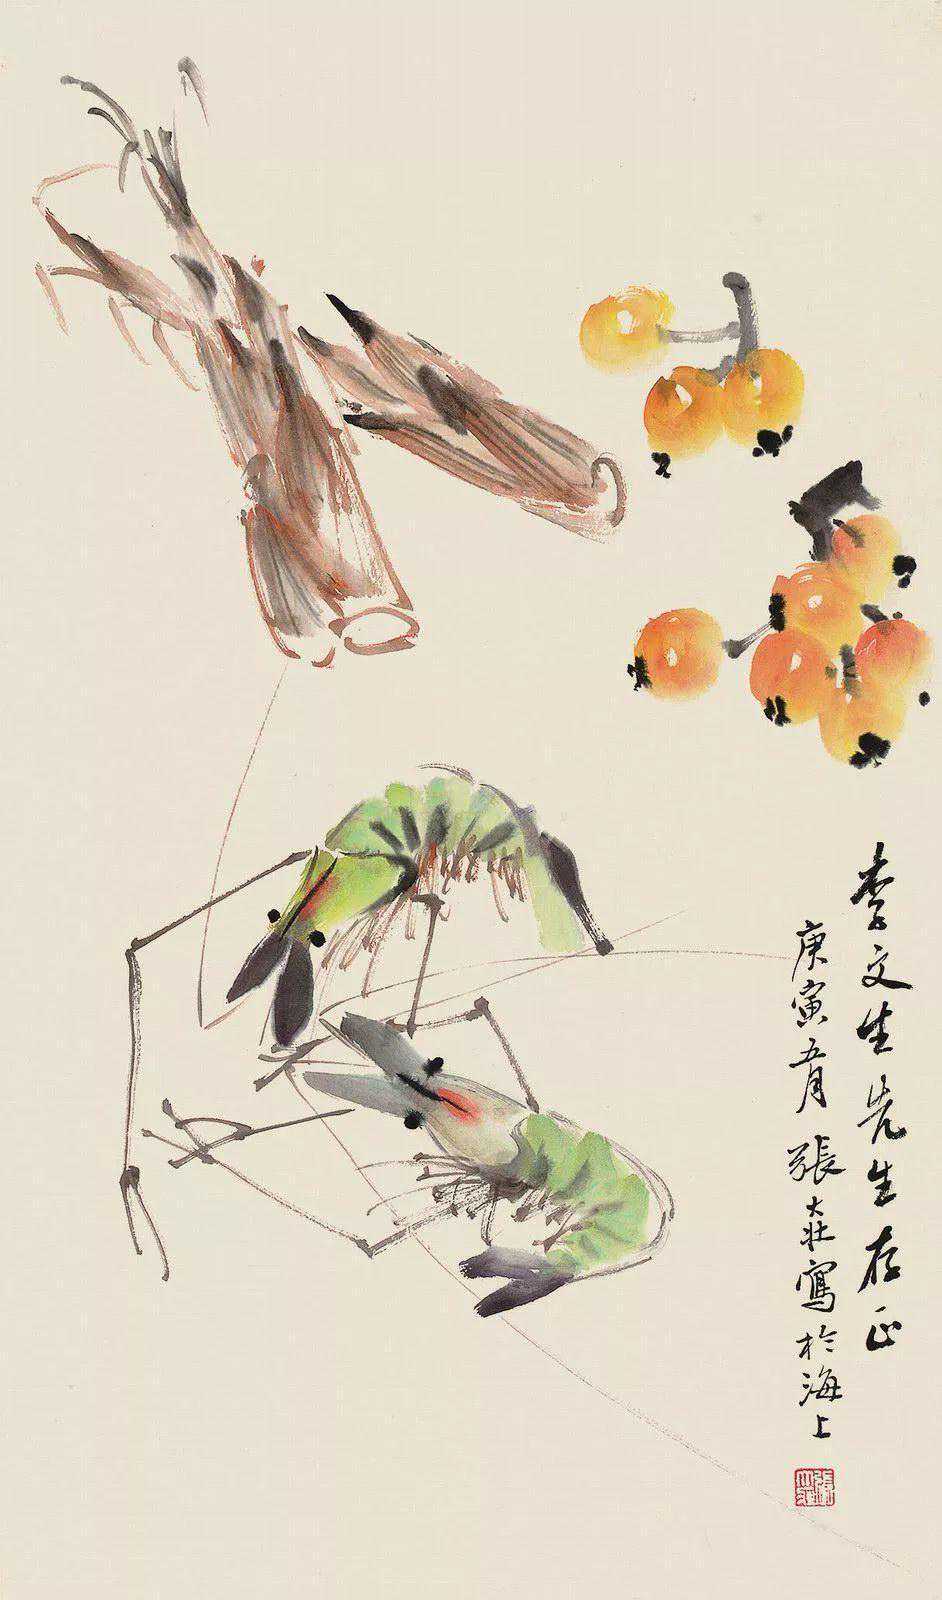 李文生先生存正
庚寅五月張大壯寫於海上